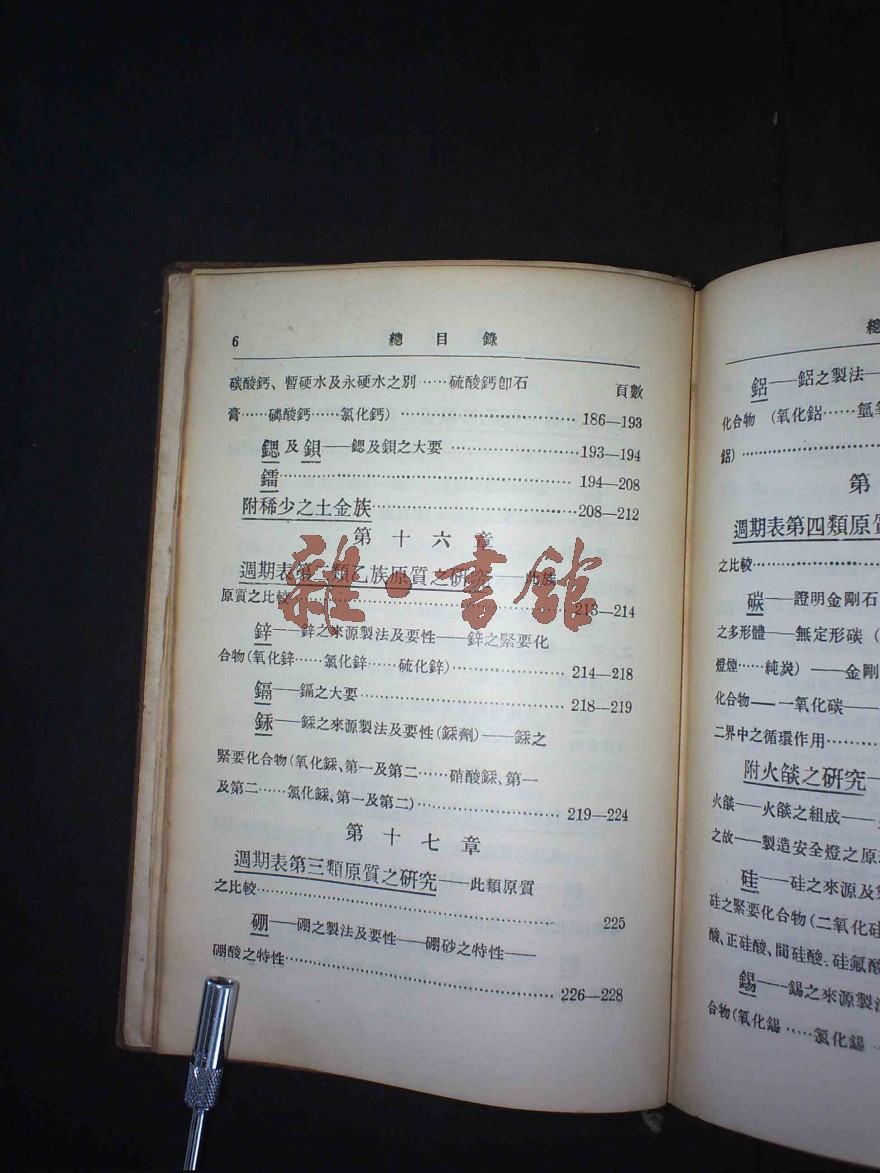 6 總目錄
碳酸鈣、暫硬水及永硬水之別……硫酸鈣卽石 頁數
膏……磷酸鈣……氯化鈣) 186—193
鍶及鋇——鍶及鋇之大要 193—194
鐳 194—208
附稀少之土金族 208—212
第十六章
週期表第二類乙族原質之研究——此族
原質之比較 213—214
鋅——鋅之來源製法及要性——鋅之緊要化
合物(氧化鋅……氯化鋅……硫化鋅) 214—218
鎘——鎘之大要 218—219
銾——銾之來源製法及要性(銾劑)——銾之
緊要化合物(氧化銾、第一及第二……硝酸銾、第一
及第二……氯化銾、第一及第二) 219—224
第十七章
週期表第三類原質之研究——此類原質
之比較 225
硼——硼之製法及要性——硼砂之特性——
硼酸之特性 226—228
雜·書館
總
鋁——鋁之製法—
化合物 (氧化鋁……氫氧
鋁)
第
週期表第四類原質
之比較
碳——證明金剛石
之多形體——無定形碳 (
燈煙……純炭) ——金剛
化合物——一氧化碳——
二界中之循環作用
附火燄之研究—
火燄——火燄之組成——
之故——製造安全燈之原
硅——硅之來源及
硅之緊要化合物(二氧化硅
酸、正硅酸、間硅酸.硅氟酸
錫——錫之來源製法
合物(氧化錫……氯化錫